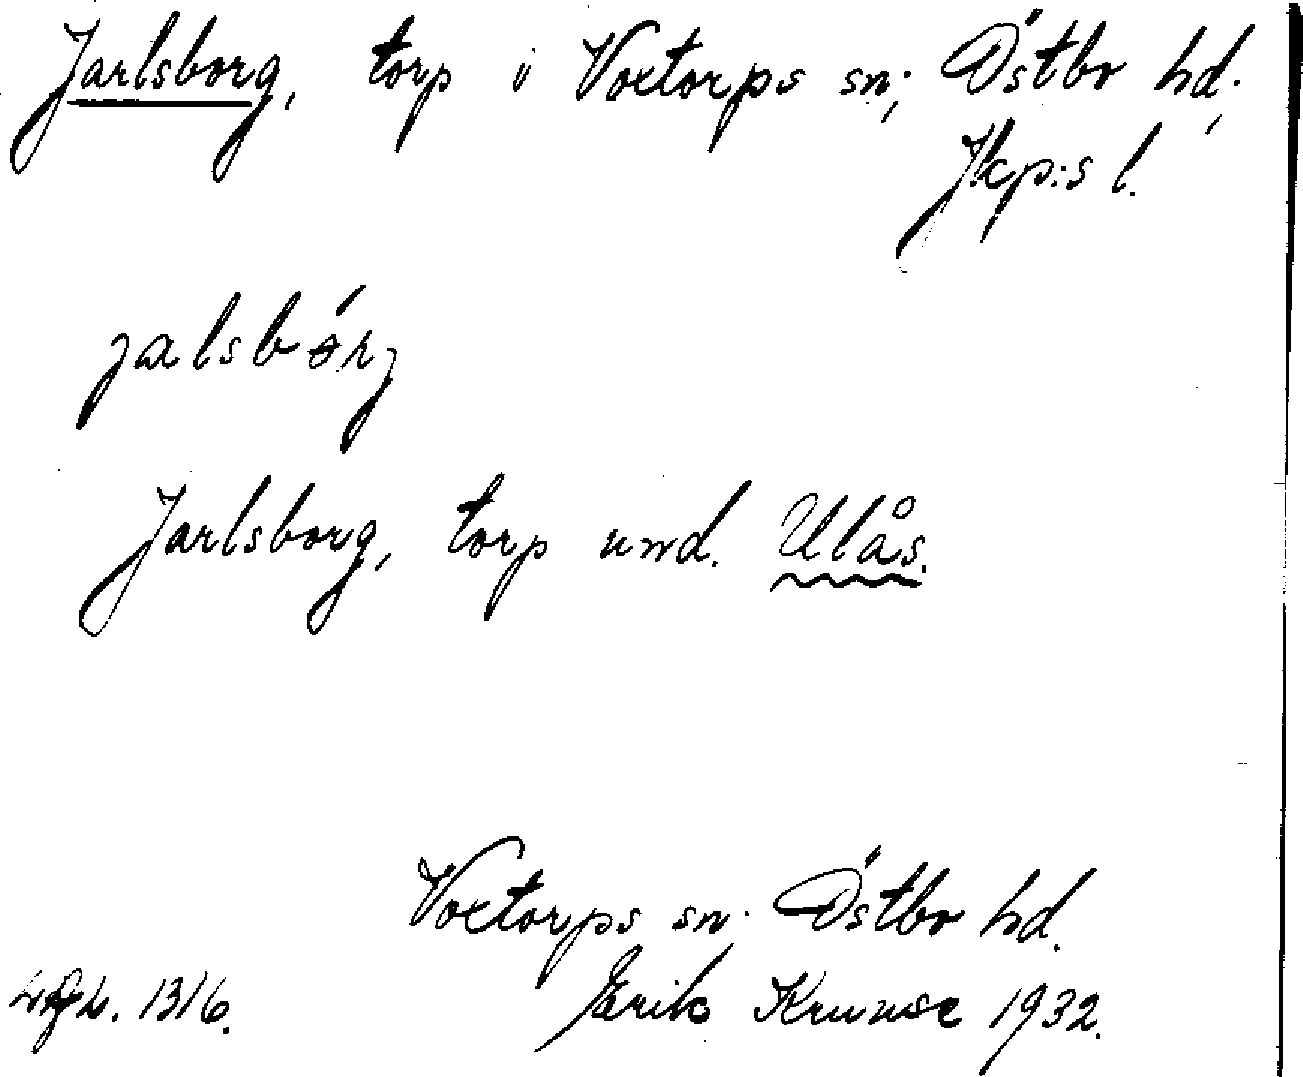 Jarlsborg, torp i Voxtorps sn; Östbo hd;
Jkp:s l.
jalsbórg
Jarlsborg, torp und. Ulås.
Voxtorps sn. Östbo hd.
1316. Erik Krunse 1932.